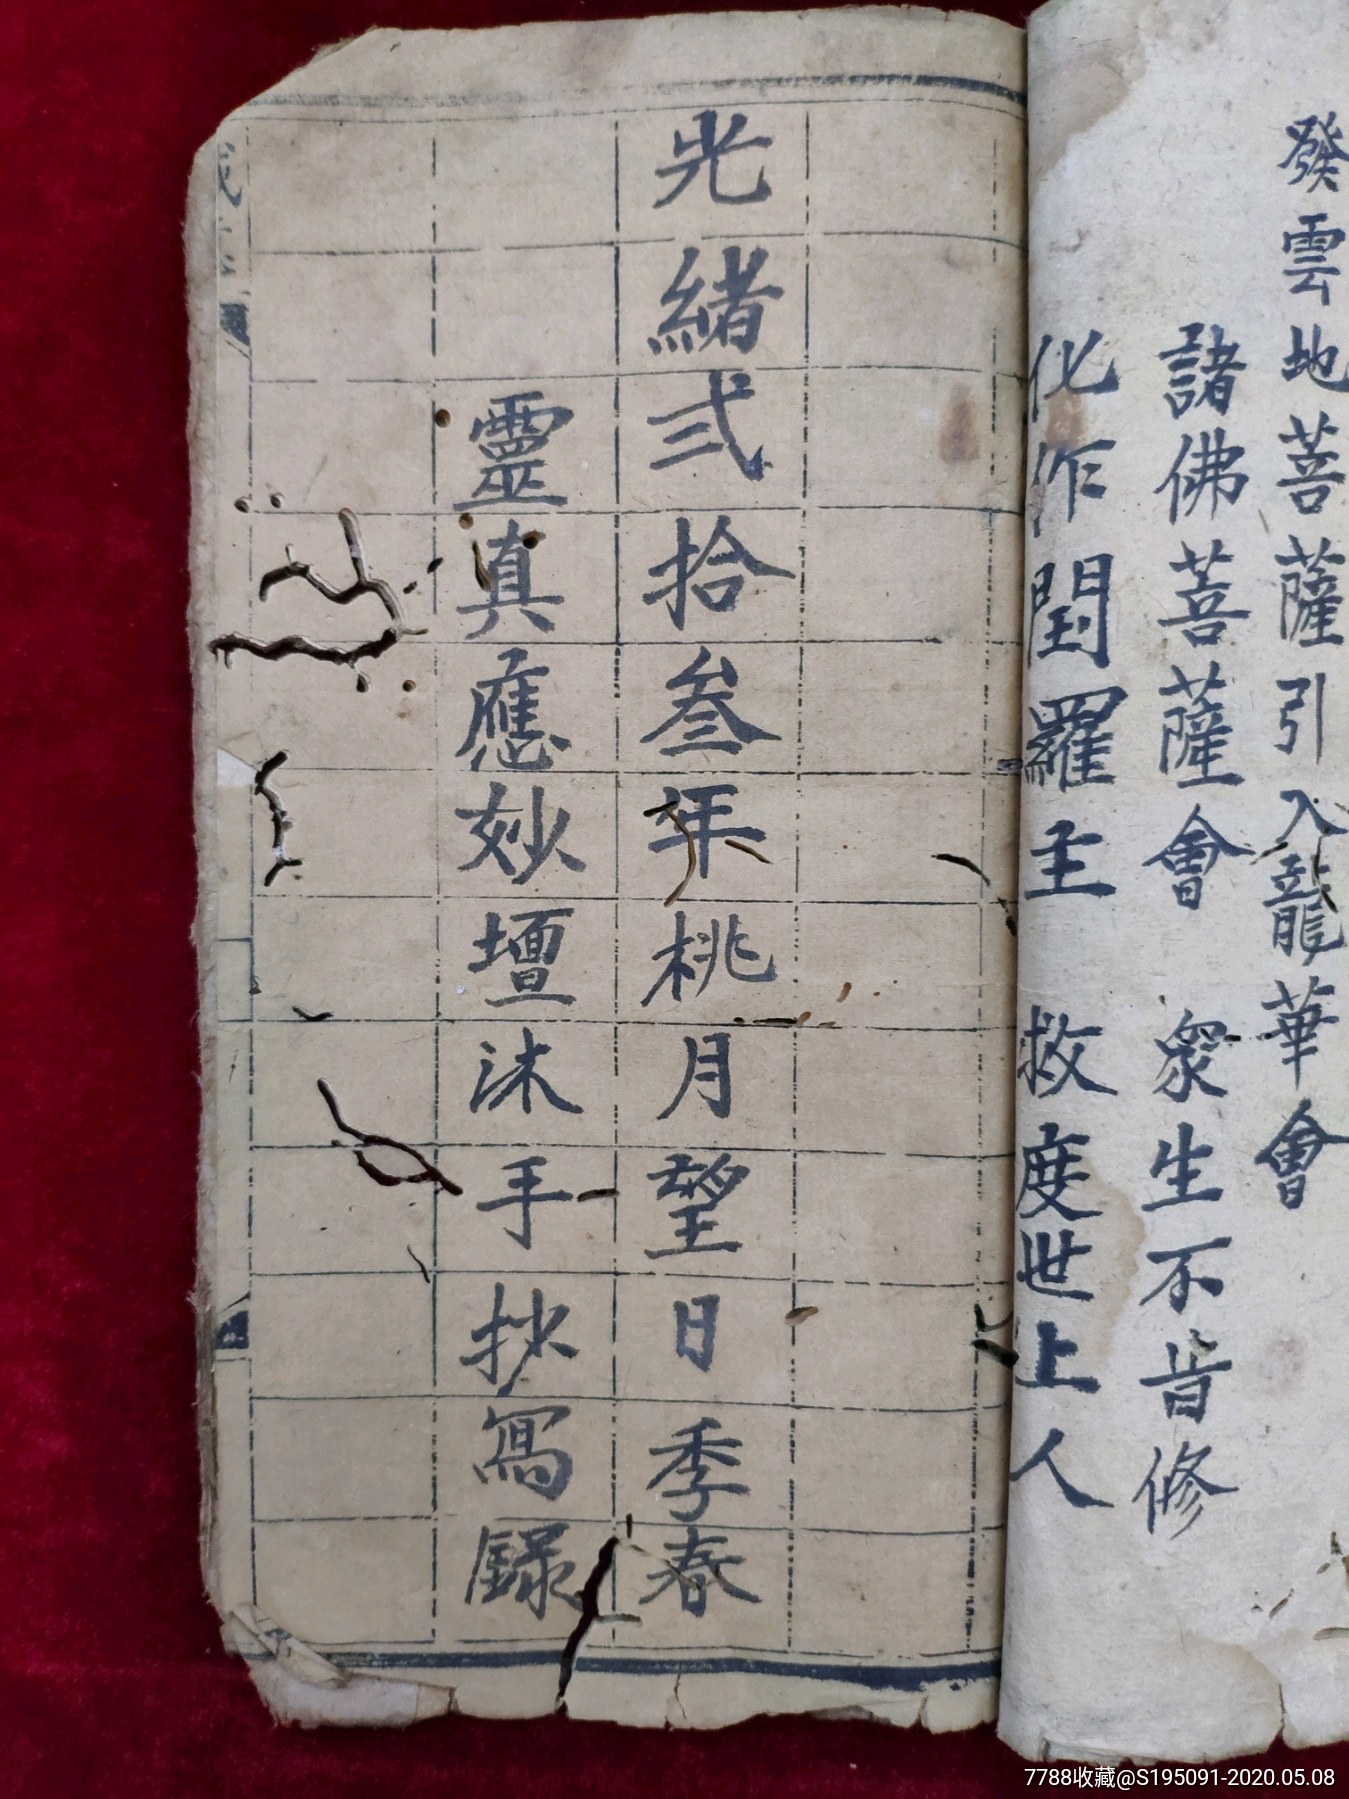 發雲地菩薩引入龍華會
諸佛菩薩會　眾生不肯修
化作閏羅主　救度世上人
光緒弍拾叁年桃月望日季春
靈真應妙壇沐手抄寫錄
7788收藏@S195091-2020.05.08